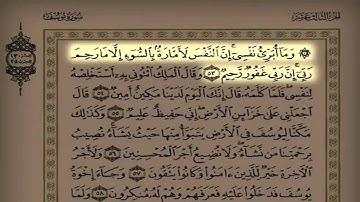 الجزء الثالث عشر
سورة يوسف
وَمَا أُبَرِّئُ نَفْسِي إِنَّ النَّفْسَ لَأَمَّارَةٌ بِالسُّوءِ إِلَّا مَا رَحِمَ
رَبِّي إِنَّ رَبِّي غَفُورٌ رَّحِيمٌ ٥٣ وَقَالَ الْمَلِكُ ائْتُونِي بِهِ أَسْتَخْلِصْهُ
لِنَفْسِي فَلَمَّا كَلَّمَهُ قَالَ إِنَّكَ الْيَوْمَ لَدَيْنَا مَكِينٌ أَمِينٌ ٥٤ قَالَ
اجْعَلْنِي عَلَى خَزَائِنِ الْأَرْضِ إِنِّي حَفِيظٌ عَلِيمٌ ٥٥ وَكَذَلِكَ
مَكَّنَّا لِيُوسُفَ فِي الْأَرْضِ يَتَبَوَّأُ مِنْهَا حَيْثُ يَشَاءُ نُصِيبُ
بِرَحْمَتِنَا مَن نَّشَاءُ وَلَا نُضِيعُ أَجْرَ الْمُحْسِنِينَ ٥٦ وَلَأَجْرُ
الْآخِرَةِ خَيْرٌ لِّلَّذِينَ آمَنُوا وَكَانُوا يَتَّقُونَ ٥٧ وَجَاءَ إِخْوَةُ
يُوسُفَ فَدَخَلُوا عَلَيْهِ فَعَرَفَهُمْ وَهُمْ لَهُ مُنكِرُونَ ٥٨ وَلَمَّا